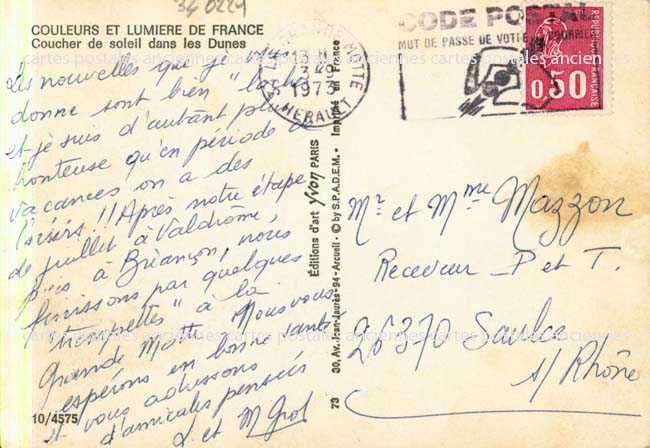 34 0229
COULEURS ET LUMIERE DE FRANCE
Coucher de soleil dans les Dunes
Les nouvelles que je vous
donne sont bien "lâches"
et je suis d'autant plus
honteuse qu'en période de
vacances on a des
loisirs!! Après notre étape
de juillet à Valdrôme,
puis à Briançon, nous
finissons par quelques
"trempettes" à la
Grande Motte. Nous vous
espérons en bonne santé
et vous adressons
d'amicales pensées
L et M
10/4575
Éditions d'art yvon PARIS
30, Av. Jean-Jaurès-94-Arcueil • © by S.P.A.D.E.M. • Imprimé en France
73
GRANDE MOTTE
13 H
1973
HERAULT
CODE POSTAL
MOT DE PASSE DE VOTRE COURRIER
RÉPUBLIQUE FRANÇAISE
0,50
Mr et Mme Mazzon
Receveur P et T.
26370 Saulce
s/ Rhône
cartes postales anciennes cartes postales anciennes cartes postales anciennes